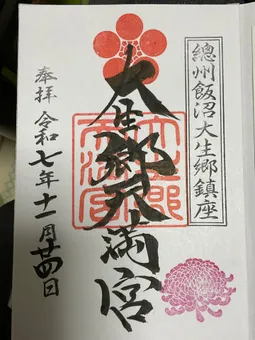 總州飯沼大生郷鎮座
大生郷天満宮
奉拝 令和七年十一月廿四日